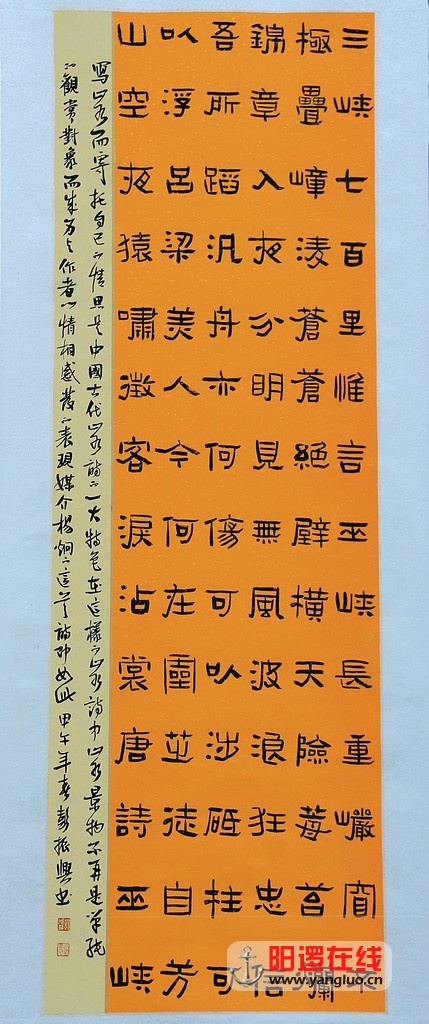 三峡七百里惟言巫峡長重巗窅不
極疊嶂凌蒼蒼絕壁橫天險莓苔爛
錦章入夜分明見無風波浪狂忠信
吾所蹈汎舟亦何傷可㕥涉砥柱可
㕥浮呂梁美人今何在靈芷徒自芳
山空夜猿嘯徵客淚沾裳唐詩巫峡
寫山水而寄托自己之情思是中國古代山水詩之一大特色在這樣之山水詩中山水景物不再是單純
之觀賞對象而成为了作者之情相感發之表現媒介楊炯之這首詩即如此甲午年春彭振興书
阳逻在线
www.yangluo.cn